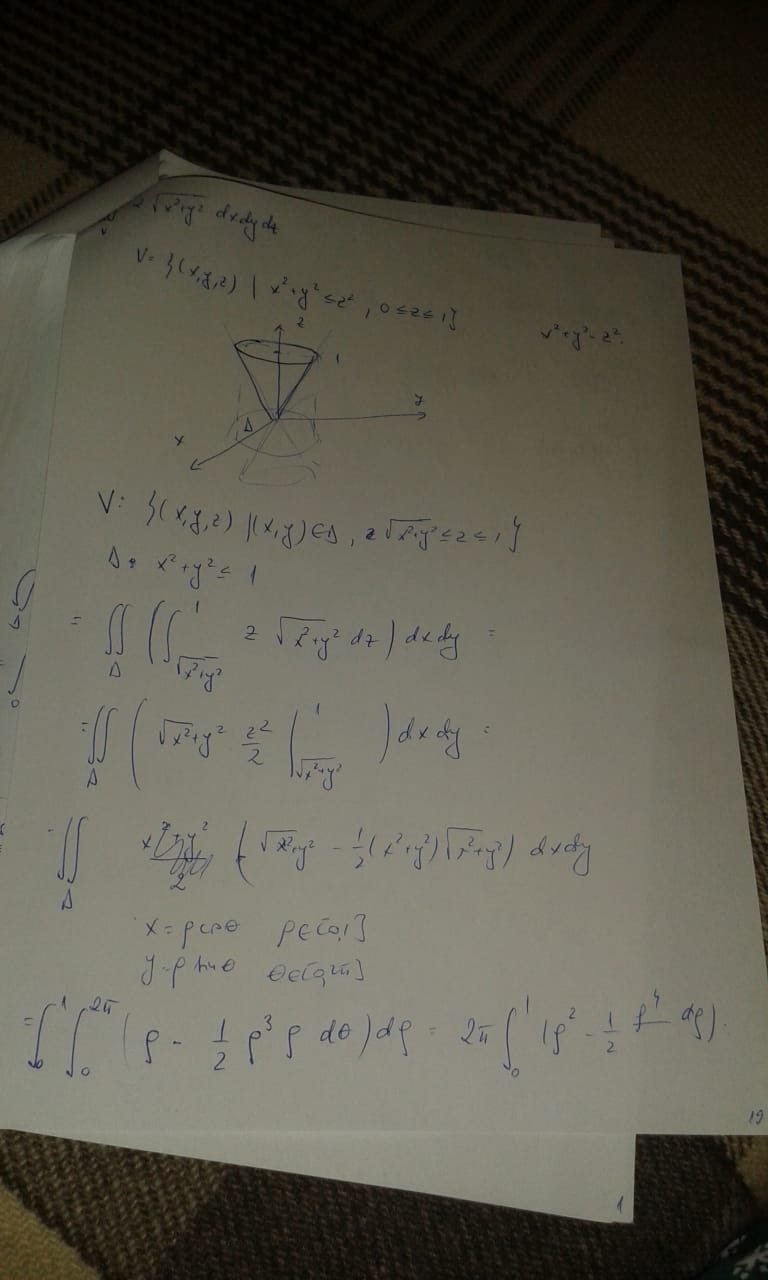 z √(x²+y²) dxdydz
V = {(x,y,z) | x²+y² ≤ z², 0 ≤ z ≤ 1}
x²+y² = z².
z
1
y
Δ
x
V: {(x,y,z) | (x,y) ∈ Δ, √(x²+y²) ≤ z ≤ 1}
Δ: x²+y² ≤ 1
= ∬_Δ (∫_{√(x²+y²)}^1 z √(x²+y²) dz) dxdy =
= ∬_Δ (√(x²+y²) z²/2 |_{√(x²+y²)}^1) dxdy =
∬_Δ (√(x²+y²) - 1/2 (x²+y²) √(x²+y²)) dxdy
x = ρ cos θ ρ ∈ [0,1]
y = ρ sin θ θ ∈ [0,2π]
= ∫_0^1 ∫_0^{2π} (ρ - 1/2 ρ³ ρ dθ) dρ = 2π ∫_0^1 (ρ² - 1/2 ρ⁴ dρ).
19
1